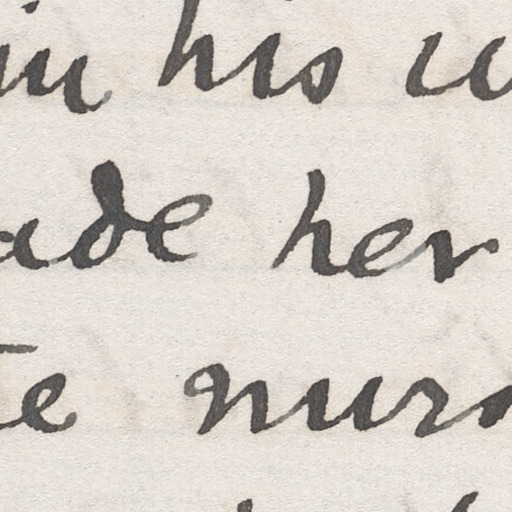 in his
ade her
te nurs